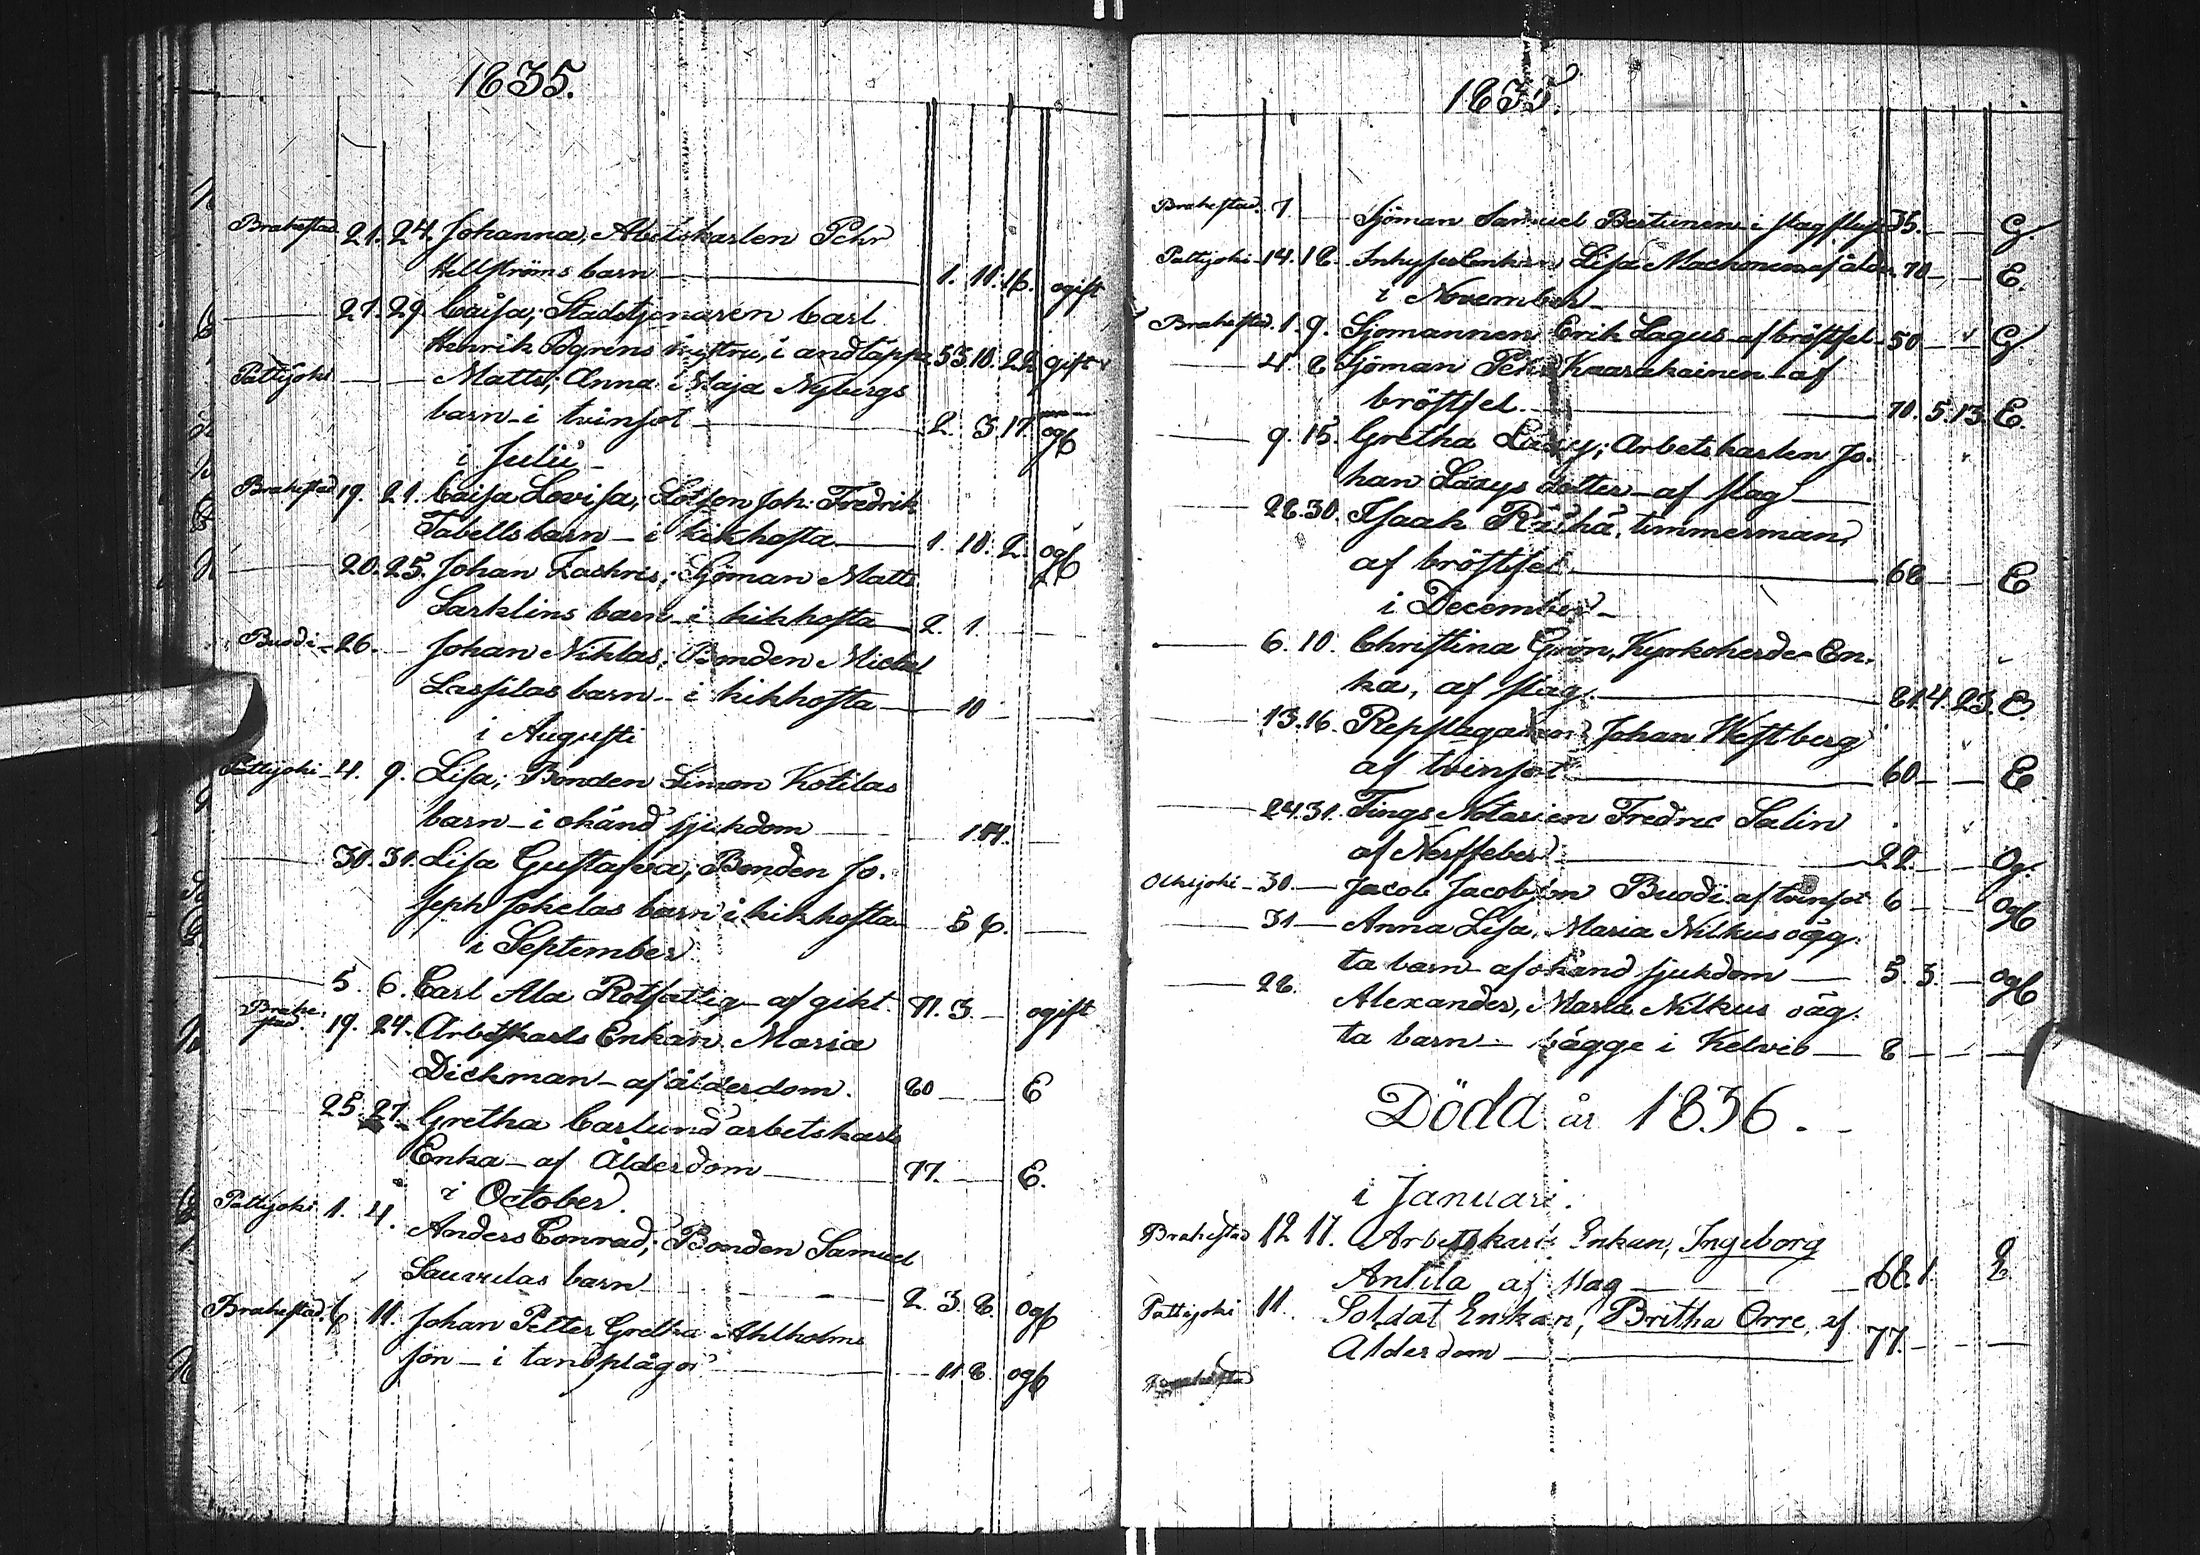 1835.
Brahestad 21. 24. Johanna, Abetskarlen Pehr
Hellströms barn 1. 11. 16. ogift
21. 29. Caisa, Stadstjenaren Carl
Henrik Bogrens hustru, i andtäppa 53. 10. 22 gift
Pattijoki Matts, Anna Maja Nybergs
barn i tvinsot 2. 3. 17. ogb
i Julii
Brahestad 19. 21. Caisa Lovisa, Lotsen Joh: Fredrik
Tabells barn i kikhosta 1. 10. 2. ogb
20. 25. Johan Zachris, Sjöman Matts
Sarklins barn i kikhosta 2. 1.
Buodi 26. Johan Niklas, Bonden Mickel
Lassilas barn i kikhosta 10
i Augusti
Pattijoki 4. 9. Lisa, Bonden Simon Kotilas
barn i okänd sjukdom 1. 14.
30. 31. Lisa Gustafva, Bonden Jo-
seph Jokelas barn i kikhosta 5 6.
i September
5. 6. Carl Ala Rotfattig af gikt. 71. 3. ogift
Brahe-
stad. 19. 24. Arbetskarls Enkan Maria
Dickman af ålderdom. 80 E
25. 27. Gretha Carlund arbetskarls
Enka af Ålderdom 77. E.
i October.
Pattijoki 1. 4. Anders Conrad, Bonden Samuel
Sauvulas barn 2. 3. 8. ogb
Brahestad. 6. 11. Johan Petter Gretha Ahlholms
son i tandplågor 11 8. ogb
1835.
Brahestad. 7. Sjöman Samuel Bertunen i slagfluss 35. G.
Pattijoki 14. 18. Inhyses Enkan Lisa Machonen af ålder 70 E.
i November
Brahestad. 1. 9. Sjömannen Erik Lagus af bröstfel 50 G
4. 8 Sjöman Pehr Kaarakainen af
bröstfel. 70. 5. 13. E.
9. 15. Gretha Laxy, Arbetskarlen Jo-
han Laxys dotter af slag
28. 30. Isaak Räihä, timmerman,
af bröstfel. 68 E
i December
6. 10. Christina Grön, Kyrkoherde En-
ka, af slag. 81. 4. 23. E.
13. 16. Repslagaren Johan Westberg
af tvinsot 60 E
24. 31. Tings Notarien Fredric Salin
af Nerffeber 22. Og.
Olkijoki 30. Jacob Jacobson Buodi af tvinsot 6 Ogb
31 Anna Lisa, Maria Nilkus oägg-
ta barn af okänd sjukdom 5. 3. ogb
28. Alexander, Maria Nilkus oäg-
ta barn bägge i Kelviå 8
Döda år 1836.
i Januari.
Brahestad 12 17. Arbetskarls Enkan, Ingeborg
Antila af slag 68. 1. E
Pattijoki 11. Soldat Enkan, Britha Orre, af
Ålderdom 77.
Brahestad